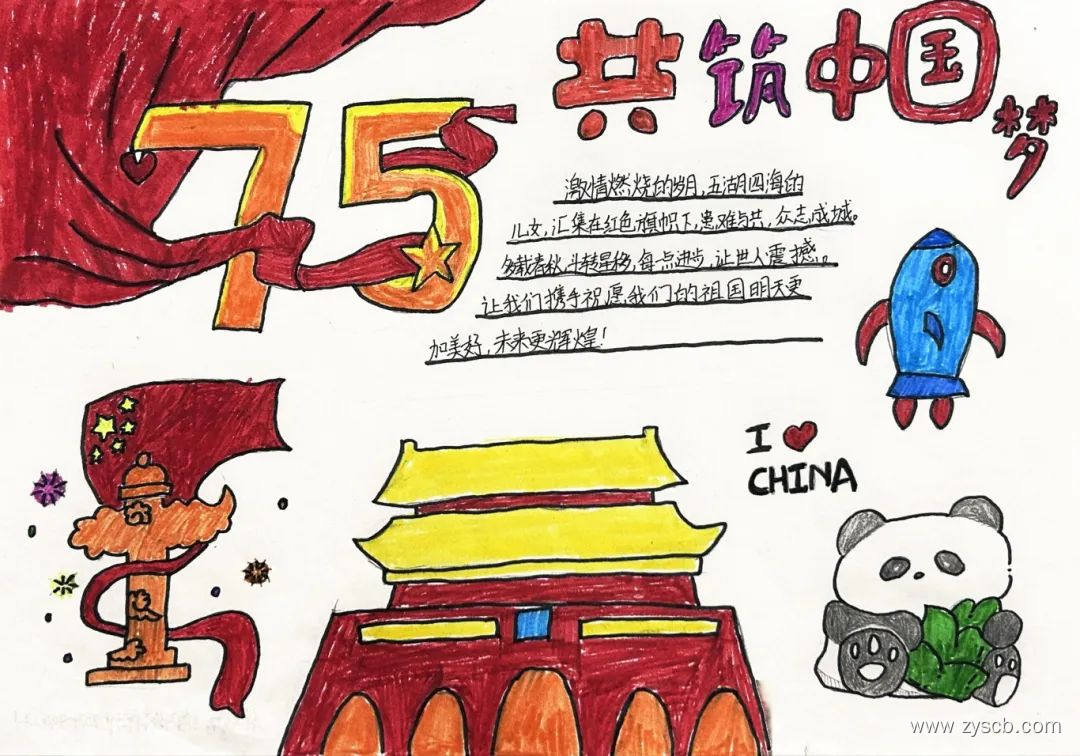 共筑中国梦
75
激情燃烧的岁月,五湖四海的
儿女,汇集在红色旗帜下,患难与共,众志成城。
多载春秋,斗转星移,每一点进步,让世人震撼。
让我们携手祝愿,我们的祖国明天更
加美好,未来更辉煌!
I ❤
CHINA
www.zyscb.com